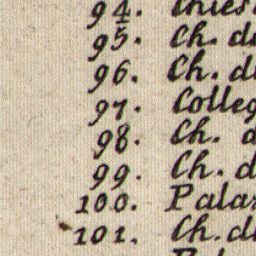 94. Chies
95. Ch. d
96. Ch. di
97. Colleg
98. Ch. d
99. Ch. d
100. Palaz
101. Ch. di